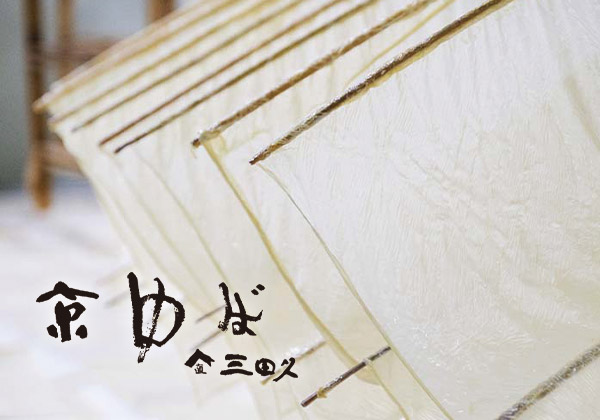 京ゆば
金三田久